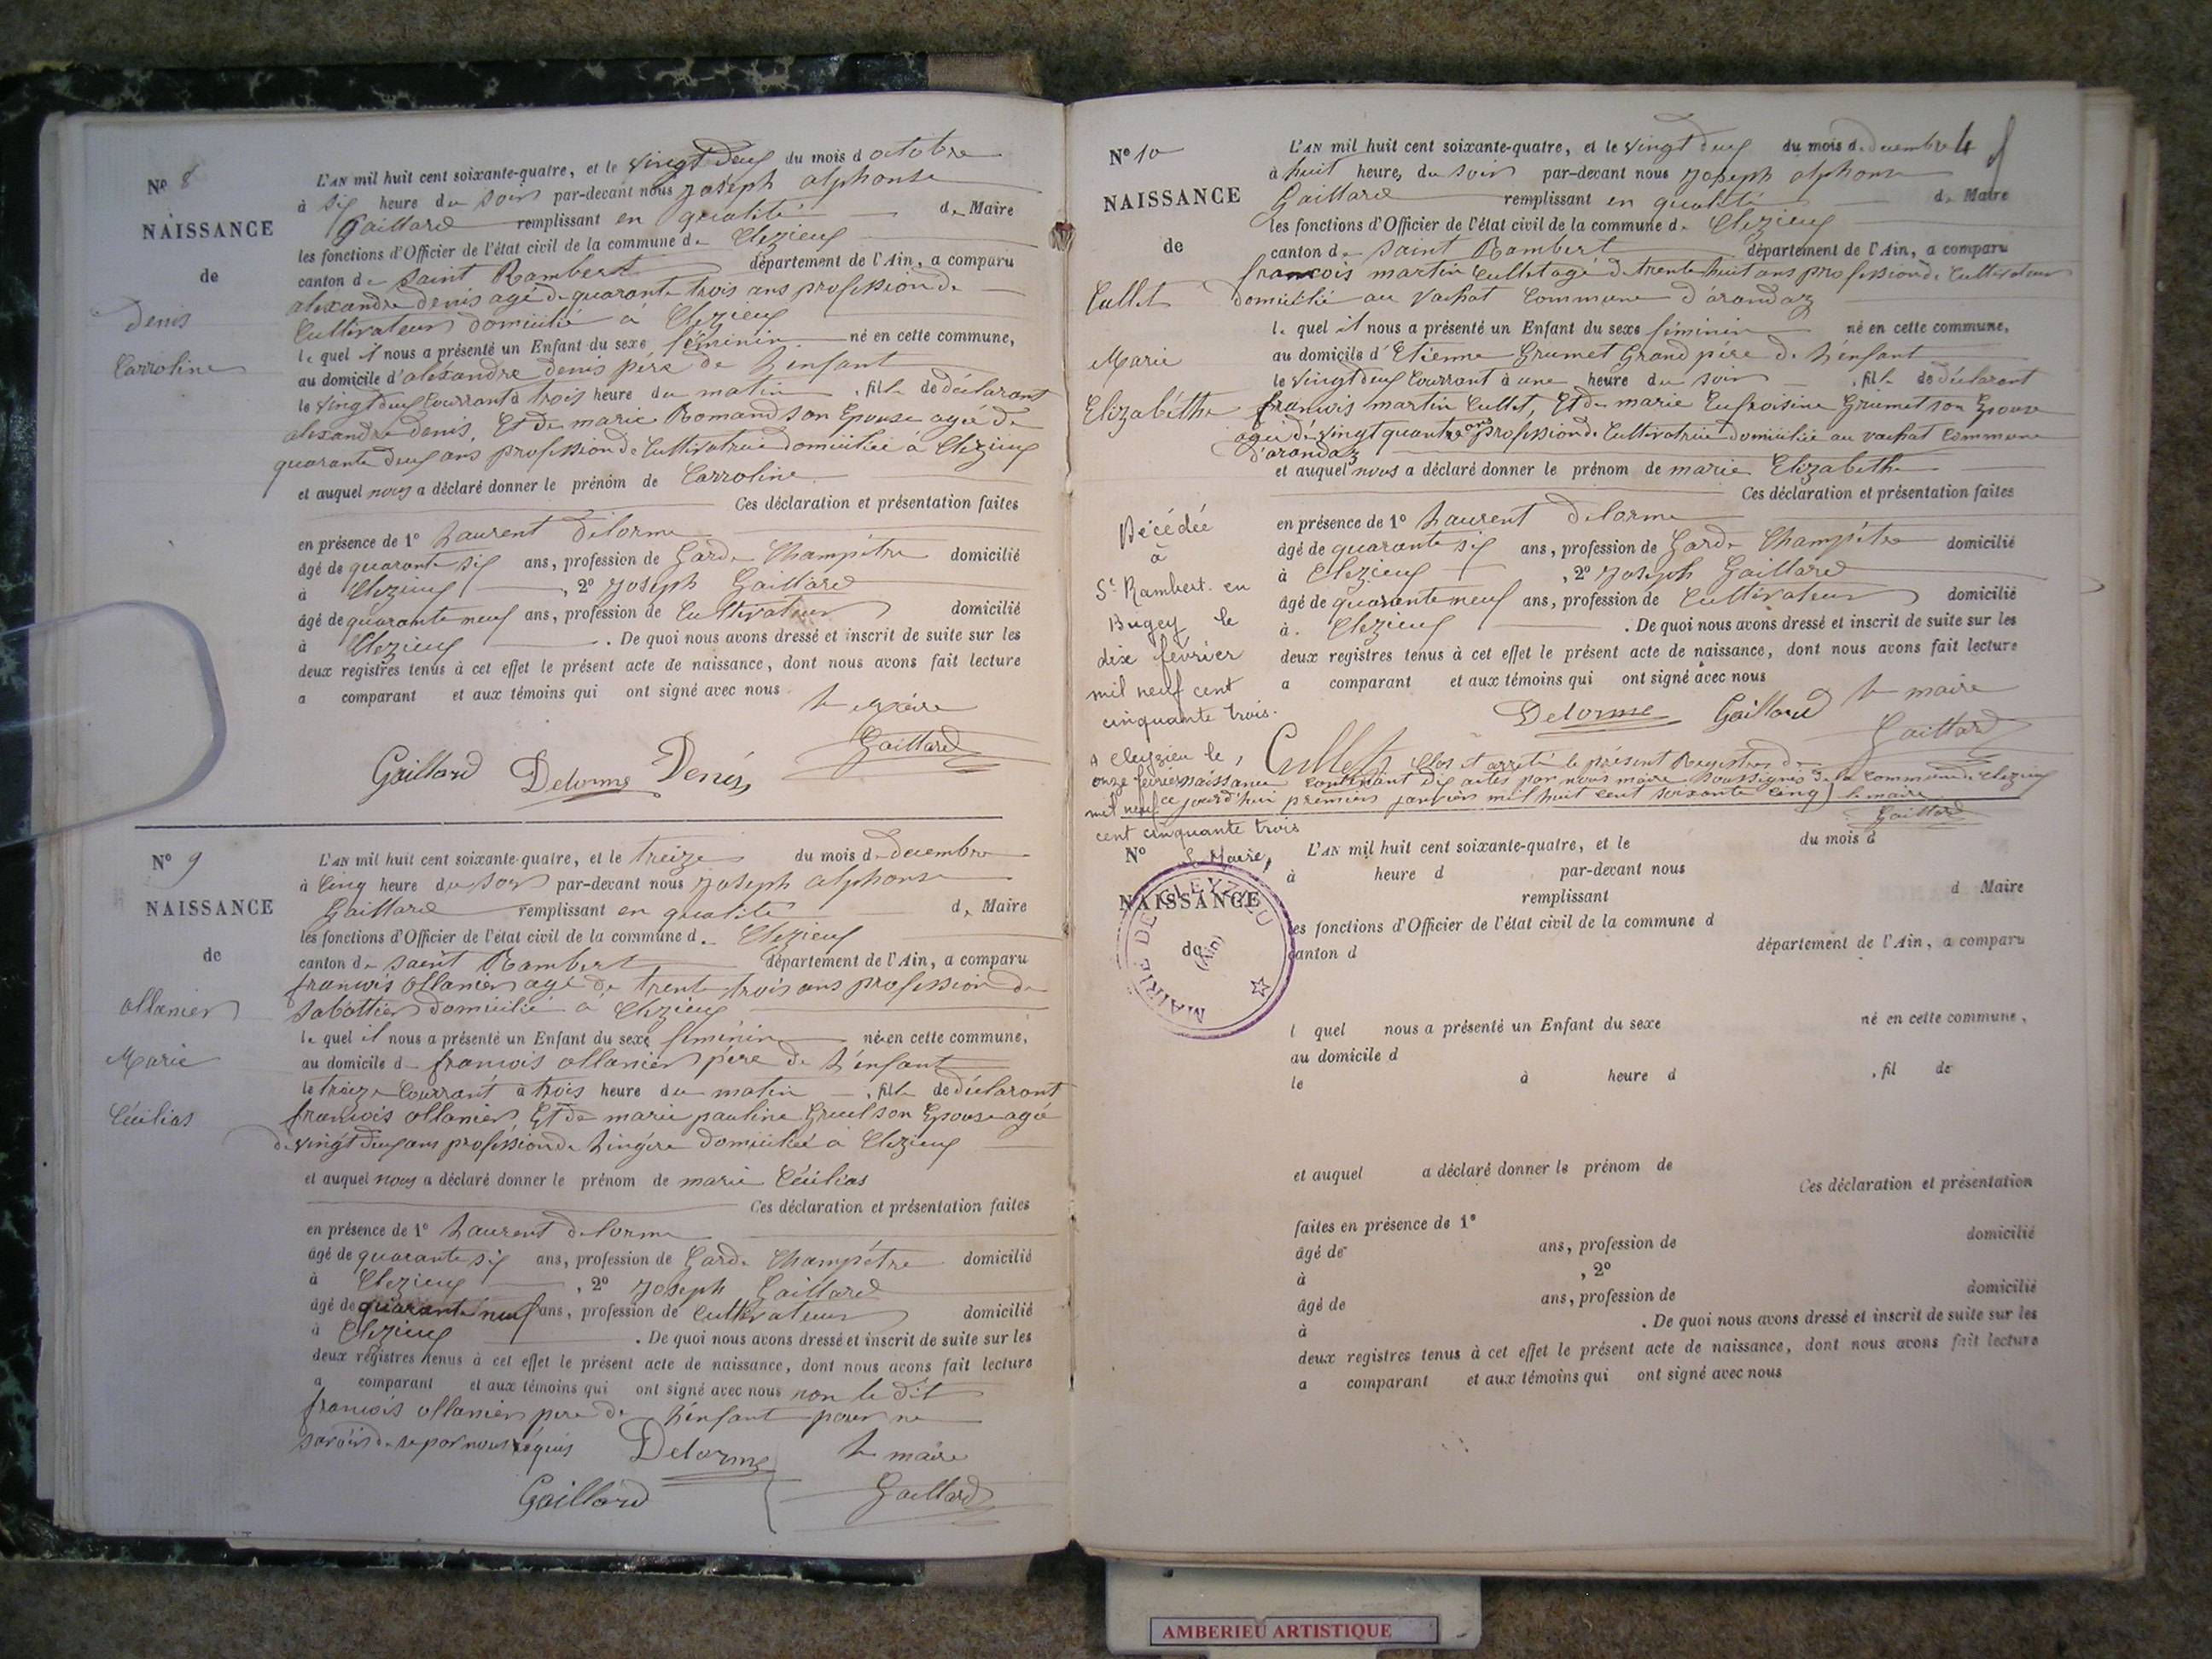 Nº 8
NAISSANCE
de
Denis
Carroline
L'AN mil huit cent soixante-quatre, et le vingt deux du mois d octobre
à six heure du soir par-devant nous Joseph alphonse
Gaillard remplissant en qualité de Maire
les fonctions d'Officier de l'état civil de la commune de Clezieux
canton de Saint Rambert département de l'Ain, a comparu
alexandre denis agé de quarante trois ans profession de
Cultivateur domicilié à Clezieux
le quel il nous a présenté un Enfant du sexe féminin né en cette commune,
au domicile d'alexandre denis père de L'enfant
le vingt deux Courrant à trois heure du matin, fille de déclarant
alexandre denis, Et de marie Romand son Epouse agée de
quarante deux ans profession de Cultivatrice domiciliée à Clezieux
et auquel nous a déclaré donner le prénom de Carroline
Ces déclaration et présentation faites
en présence de 1º Laurent delorme
âgé de quarante six ans, profession de Garde Champêtre domicilié
à Clezieux, 2º Joseph Gaillard
âgé de quarante neuf ans, profession de Cultivateur domicilié
à Clezieux. De quoi nous avons dressé et inscrit de suite sur les
deux registres tenus à cet effet le présent acte de naissance, dont nous avons fait lecture
a comparant et aux témoins qui ont signé avec nous
Le Maire
Gaillard Delorme Denis Gaillard
Nº 9
NAISSANCE
de
ollanier
Marie
Céciliar
L'AN mil huit cent soixante-quatre, et le treize du mois de decembre
à Cinq heure du soir par-devant nous Joseph alphonse
Gaillard remplissant en qualité de Maire
les fonctions d'Officier de l'état civil de la commune de Clezieux
canton de saint Rambert département de l'Ain, a comparu
francois Ollanier agé de trente trois ans profession de
Sabottier domicilié à Clezieux
le quel il nous a présenté un Enfant du sexe féminin né en cette commune,
au domicile de francois ollanier père de L'enfant
le treize Courrant à trois heure du matin, fille de déclarant
francois ollanier, Et de marie pauline Gruel son Epouse agée
de vingt deux ans profession de Lingère domiciliée à Clezieux
et auquel nous a déclaré donner le prénom de marie Céciliar
Ces déclaration et présentation faites
en présence de 1º Laurent delorme
âgé de quarante six ans, profession de Garde Champêtre domicilié
à Clezieux, 2º Joseph Gaillard
âgé de quarante neuf ans, profession de Cultivateur domicilié
à Clezieux. De quoi nous avons dressé et inscrit de suite sur les
deux registres tenus à cet effet le présent acte de naissance, dont nous avons fait lecture
a comparant et aux témoins qui ont signé avec nous non le dit
francois ollanier père de L'enfant pour ne
savoir de se par nous réquis Delorme Le maire
Gaillard Gaillard
4
Nº 10
NAISSANCE
de
Cullet
Marie
Elizabéthe
L'AN mil huit cent soixante-quatre, et le vingt deux du mois de decembre
à huit heure, du soir par-devant nous Joseph alphonse
Gaillard remplissant en qualité de Maire
les fonctions d'Officier de l'état civil de la commune de Clezieux
canton de Saint Rambert département de l'Ain, a comparu
francois martin Cullet agé de trente huit ans profession de Cultivateur
domicilié au vachat Commune d'arandaz
le quel il nous a présenté un Enfant du sexe féminin né en cette commune,
au domicile d'Etienne Grumet Grand père de L'enfant
le vingt deux Courrant à une heure du soir, fille de déclarant
francois martin Cullet, Et de marie Eufroisine Grumet son Epouse
agée de vingt quatre ans profession de Cultivatrice domiciliée au vachat Commune
d'arandaz
et auquel nous a déclaré donner le prénom de marie Elizabéthe
Ces déclaration et présentation faites
en présence de 1º Laurent delorme
âgé de quarante six ans, profession de Garde Champêtre domicilié
à Clezieux, 2º Joseph Gaillard
âgé de quarante neuf ans, profession de Cultivateur domicilié
à Clezieux. De quoi nous avons dressé et inscrit de suite sur les
deux registres tenus à cet effet le présent acte de naissance, dont nous avons fait lecture
a comparant et aux témoins qui ont signé avec nous
Delorme Gaillard Le maire
Cullet Gaillard
Clos et arrêté le présent Registre de
naissance Contenant dix actes par nous maire soussigné de la Commune de Clezieux
ce jourd'hui premier janvier mil huit cent soixante Cinq le maire
Gaillard
Décédée
à
St Rambert en
Bugey le
dix février
mil neuf cent
cinquante trois.
A Cleyzieu le,
onze février
mil neuf
cent cinquante trois
Le Maire,
MAIRIE DE CLEYZIEU
(Ain)
Nº
NAISSANCE
de
L'AN mil huit cent soixante-quatre, et le du mois d
à heure d par-devant nous
remplissant d Maire
les fonctions d'Officier de l'état civil de la commune d
canton d département de l'Ain, a comparu
l quel nous a présenté un Enfant du sexe né en cette commune,
au domicile d
le à heure d , fil de
et auquel a déclaré donner le prénom de
Ces déclaration et présentation
faites en présence de 1º
âgé de ans, profession de domicilié
à , 2º
âgé de ans, profession de domicilié
à . De quoi nous avons dressé et inscrit de suite sur les
deux registres tenus à cet effet le présent acte de naissance, dont nous avons fait lecture
a comparant et aux témoins qui ont signé avec nous
AMBERIEU ARTISTIQUE